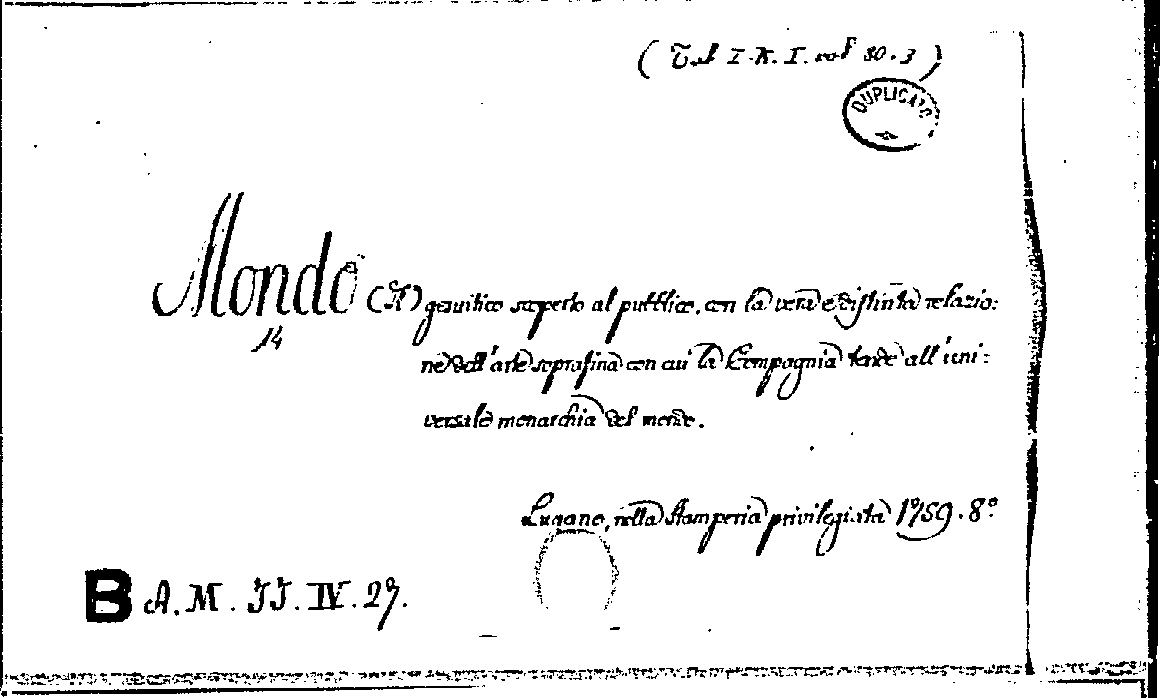 ( Tal I. K. I. vol 30. 3 )
DUPLICATO
Mondo (Il) gesuitico scoperto al pubblico, con la vera e distinta relazio:
14
ne dell'arte soprafina con cui la Compagnia tende all'uni:
versale monarchia del mondo.
Lugano, nella Stamperia privilegiata 1759. 8°
B A. M. JJ. IV. 27.